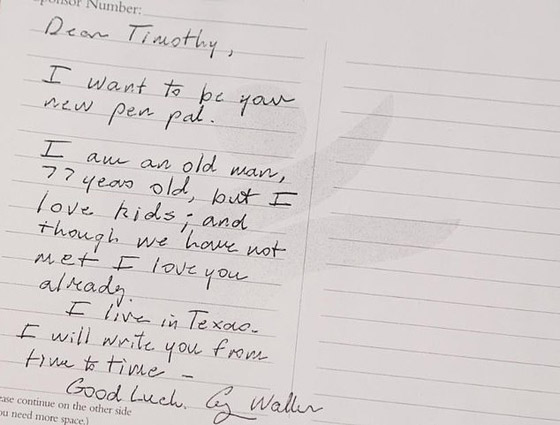 Sponsor Number:
Dear Timothy,
I want to be your
new pen pal.
I am an old man,
77 years old, but I
love kids; and
though we have not
met I love you
already.
I live in Texas.
I will write you from
time to time -
Good Luck. Cy Waller
ease continue on the other side
ou need more space.)